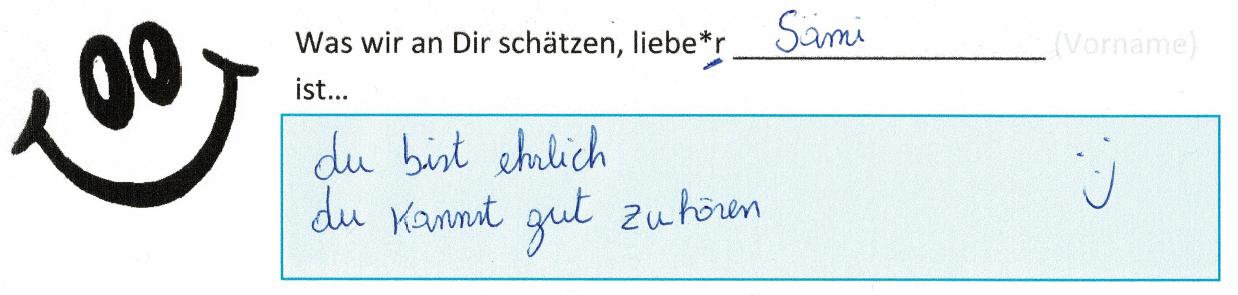 Was wir an Dir schätzen, liebe*r Sämi (Vorname)
ist...
du bist ehrlich
du kannst gut zuhören